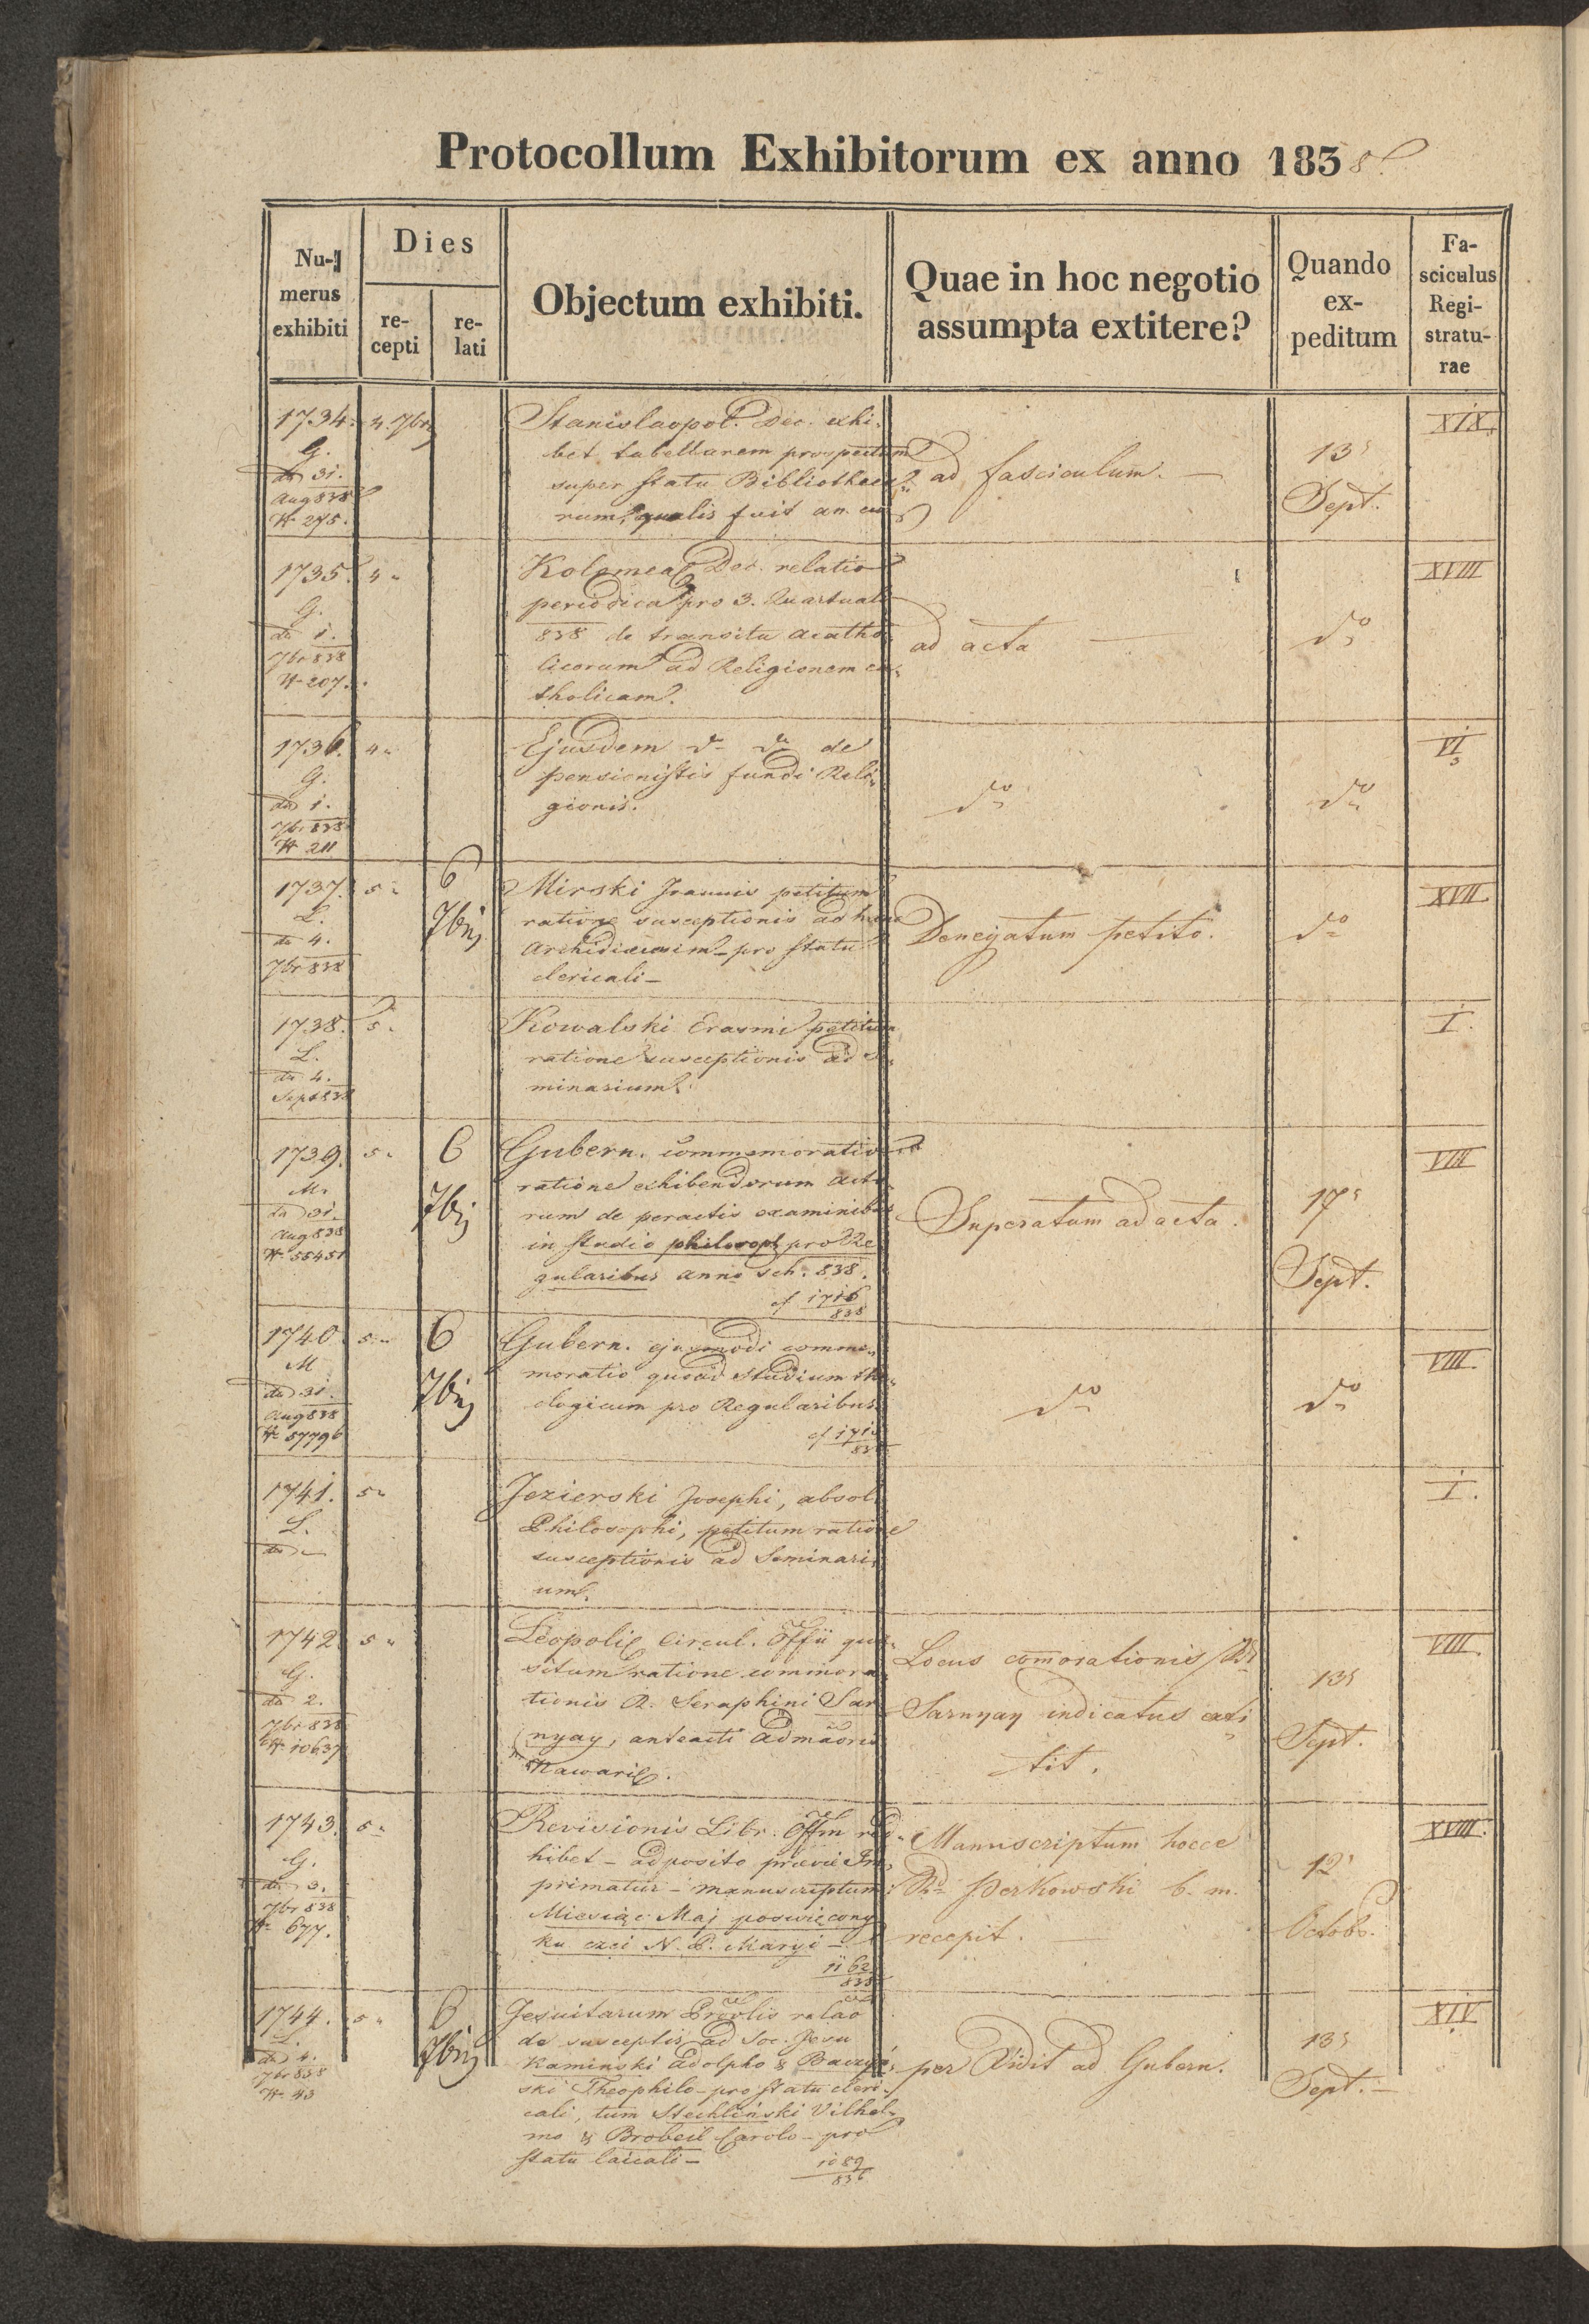 Protocollum Exhibitorum ex anno 1838
Nu-
merus
exhibiti
Dies
re-
cepti
re-
lati
Objectum exhibiti.
Quae in hoc negotio
assumpta extitere?
Quando
ex-
peditum
Fa-
sciculus
Regi-
stratu-
rae
1734.
G.
do 31.
Aug 838
N 275.
4. 7bris
Stanislaopol. Dec. exhi-
bet tabellarem prospectum
super statu Bibliotheca-
rum, qualis fuit an.
ad fasciculum.
13
Sept.
XIX.
1735.
G.
do 1.
7br 838
N 207.
4 "
Kolomeae Dec. relatio
periodica pro 3. Quartuali
838 de transitu acatho-
licorum ad Religionem ca-
tholicam.
ad acta
do
XVIII
1736.
G.
do 1.
7br 838
N 211
4 "
Ejusdem do do de
pensionistis fundi Reli-
gionis.
do
do
VI
1737.
L.
do 4.
7br 838
5 "
6
7bris
Mirski Joannis petitum
ratione susceptionis ad hanc
Archidioecesim - pro statu
clericali -
Denegatum petito.
do
XVII
1738.
L.
do 4.
Sept 838
5 "
Kowalski Erasmi petitum
ratione susceptionis ad Se-
minarium.
I.
1739.
M.
do 31.
Aug 838
N 55451
5 "
6
7bris
Gubern. commemoratio
ratione exhibendorum acto-
rum de peractis examinibus
in studio philosoph pro Re-
gularibus anno sch. 838.
cf 1716
838
Superatum ad acta.
17
Sept.
VIII
1740.
M
do 31.
Aug 838
N 57796
5 "
6
7bris
Gubern. ejusmodi comme-
moratio quoad studium the-
ologicum pro Regularibus.
cf
do
do
VIII.
1741.
L.
do
5 "
Jezierski Josephi, absol.
Philosophi, petitum ratione
susceptionis ad Seminari-
um.
I.
1742.
G.
do 2.
7br 838
N 10637
5 "
Leopolis Circul. Offii quae-
situm ratione commora-
tionis R. Seraphini Sar-
nyay, anteacti Admaoris
Nawaris.
Locus comorationis
Sarnyay indicatus exti
tit.
13
Sept.
VIII
1743.
G.
do 3.
7br 838
N 677.
5 "
Revisionis Libr. Offm red-
hibet - adposito praevie Im-
primatur - manuscriptum:
Miesiąc Maj poswięcony
ku czci N. P. Maryi -
1162
838
Manuscriptum hocce
Rd Perkowski b. m.
recepit.
12
Octobr.
XVIII.
1744.
L.
do 4.
7br 838
N 43
5 "
6
7bris
Jesuitarum Provlis relao
de susceptis ad Soc. Jesu
Kaminski Adolpho &
ski Theophilo - pro statu cleri-
cali, tum Stechliński Vilhel-
mo & Brobeil Carolo - pro
statu laicali -
1089
836
per Vidit ad Gubern.
13
Sept. -
XIV